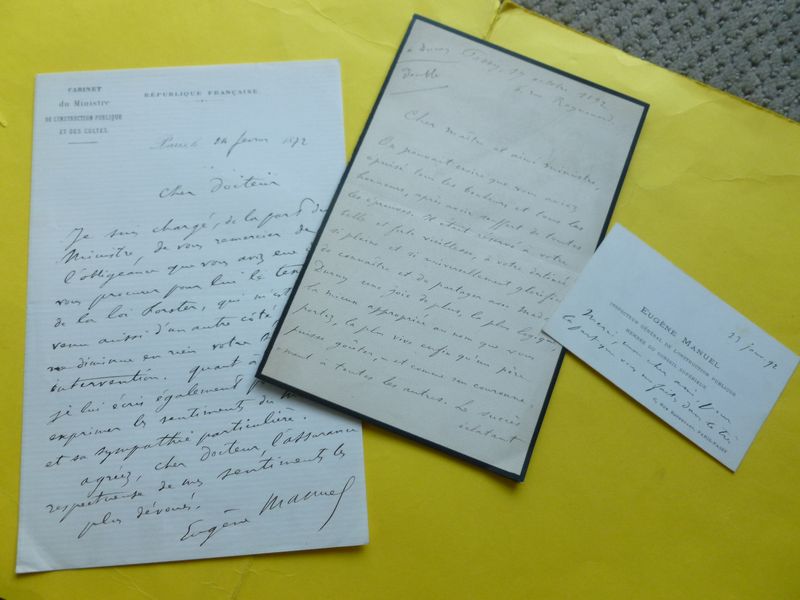 CABINET
du Ministre
DE L'INSTRUCTION PUBLIQUE
ET DES CULTES
RÉPUBLIQUE FRANÇAISE
24 février 1872
Cher Docteur
Je suis chargé, de la part du
Ministre, de vous remercier de
l'obligeance que vous avez eue de
vous procurer pour lui le texte
de la loi Forster, qui m'est
venu aussi d'un autre côté
ne diminue en rien votre
intervention. quant à
je lui écris également
exprimer les sentiments du
et sa sympathie particulière.
agréez, cher Docteur, l'assurance
respectueuse de mes sentiments les
plus dévoués.
Eugène Manuel
à Duruy
double
Passy, 19 octobre 1892
6, rue Raynouard.
Cher maître et ami ministre,
On pouvait croire que vous aviez
épuisé tous les bonheurs et tous les
honneurs, après avoir souffert de toutes
les épreuves. Il était réservé à votre
belle et forte vieillesse, à votre
si pleine et si universellement
de connaître et de partager avec Mad.
Duruy une joie de plus, la plus
la mieux appropriée au nom que vous
portez, la plus vive enfin qu'un père
puisse goûter, et comme un couronne-
ment à toutes les autres. Le succès
éclatant
EUGÈNE MANUEL
INSPECTEUR GÉNÉRAL DE L'INSTRUCTION PUBLIQUE
MEMBRE DU CONSEIL SUPÉRIEUR
23 janv. 92
Merci, mon cher ami
6, RUE RAYNOUARD, PARIS-PASSY